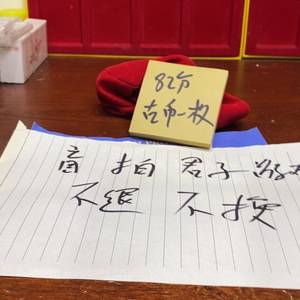 82分
古币一枚
盲拍 君子游戏
不退 不换